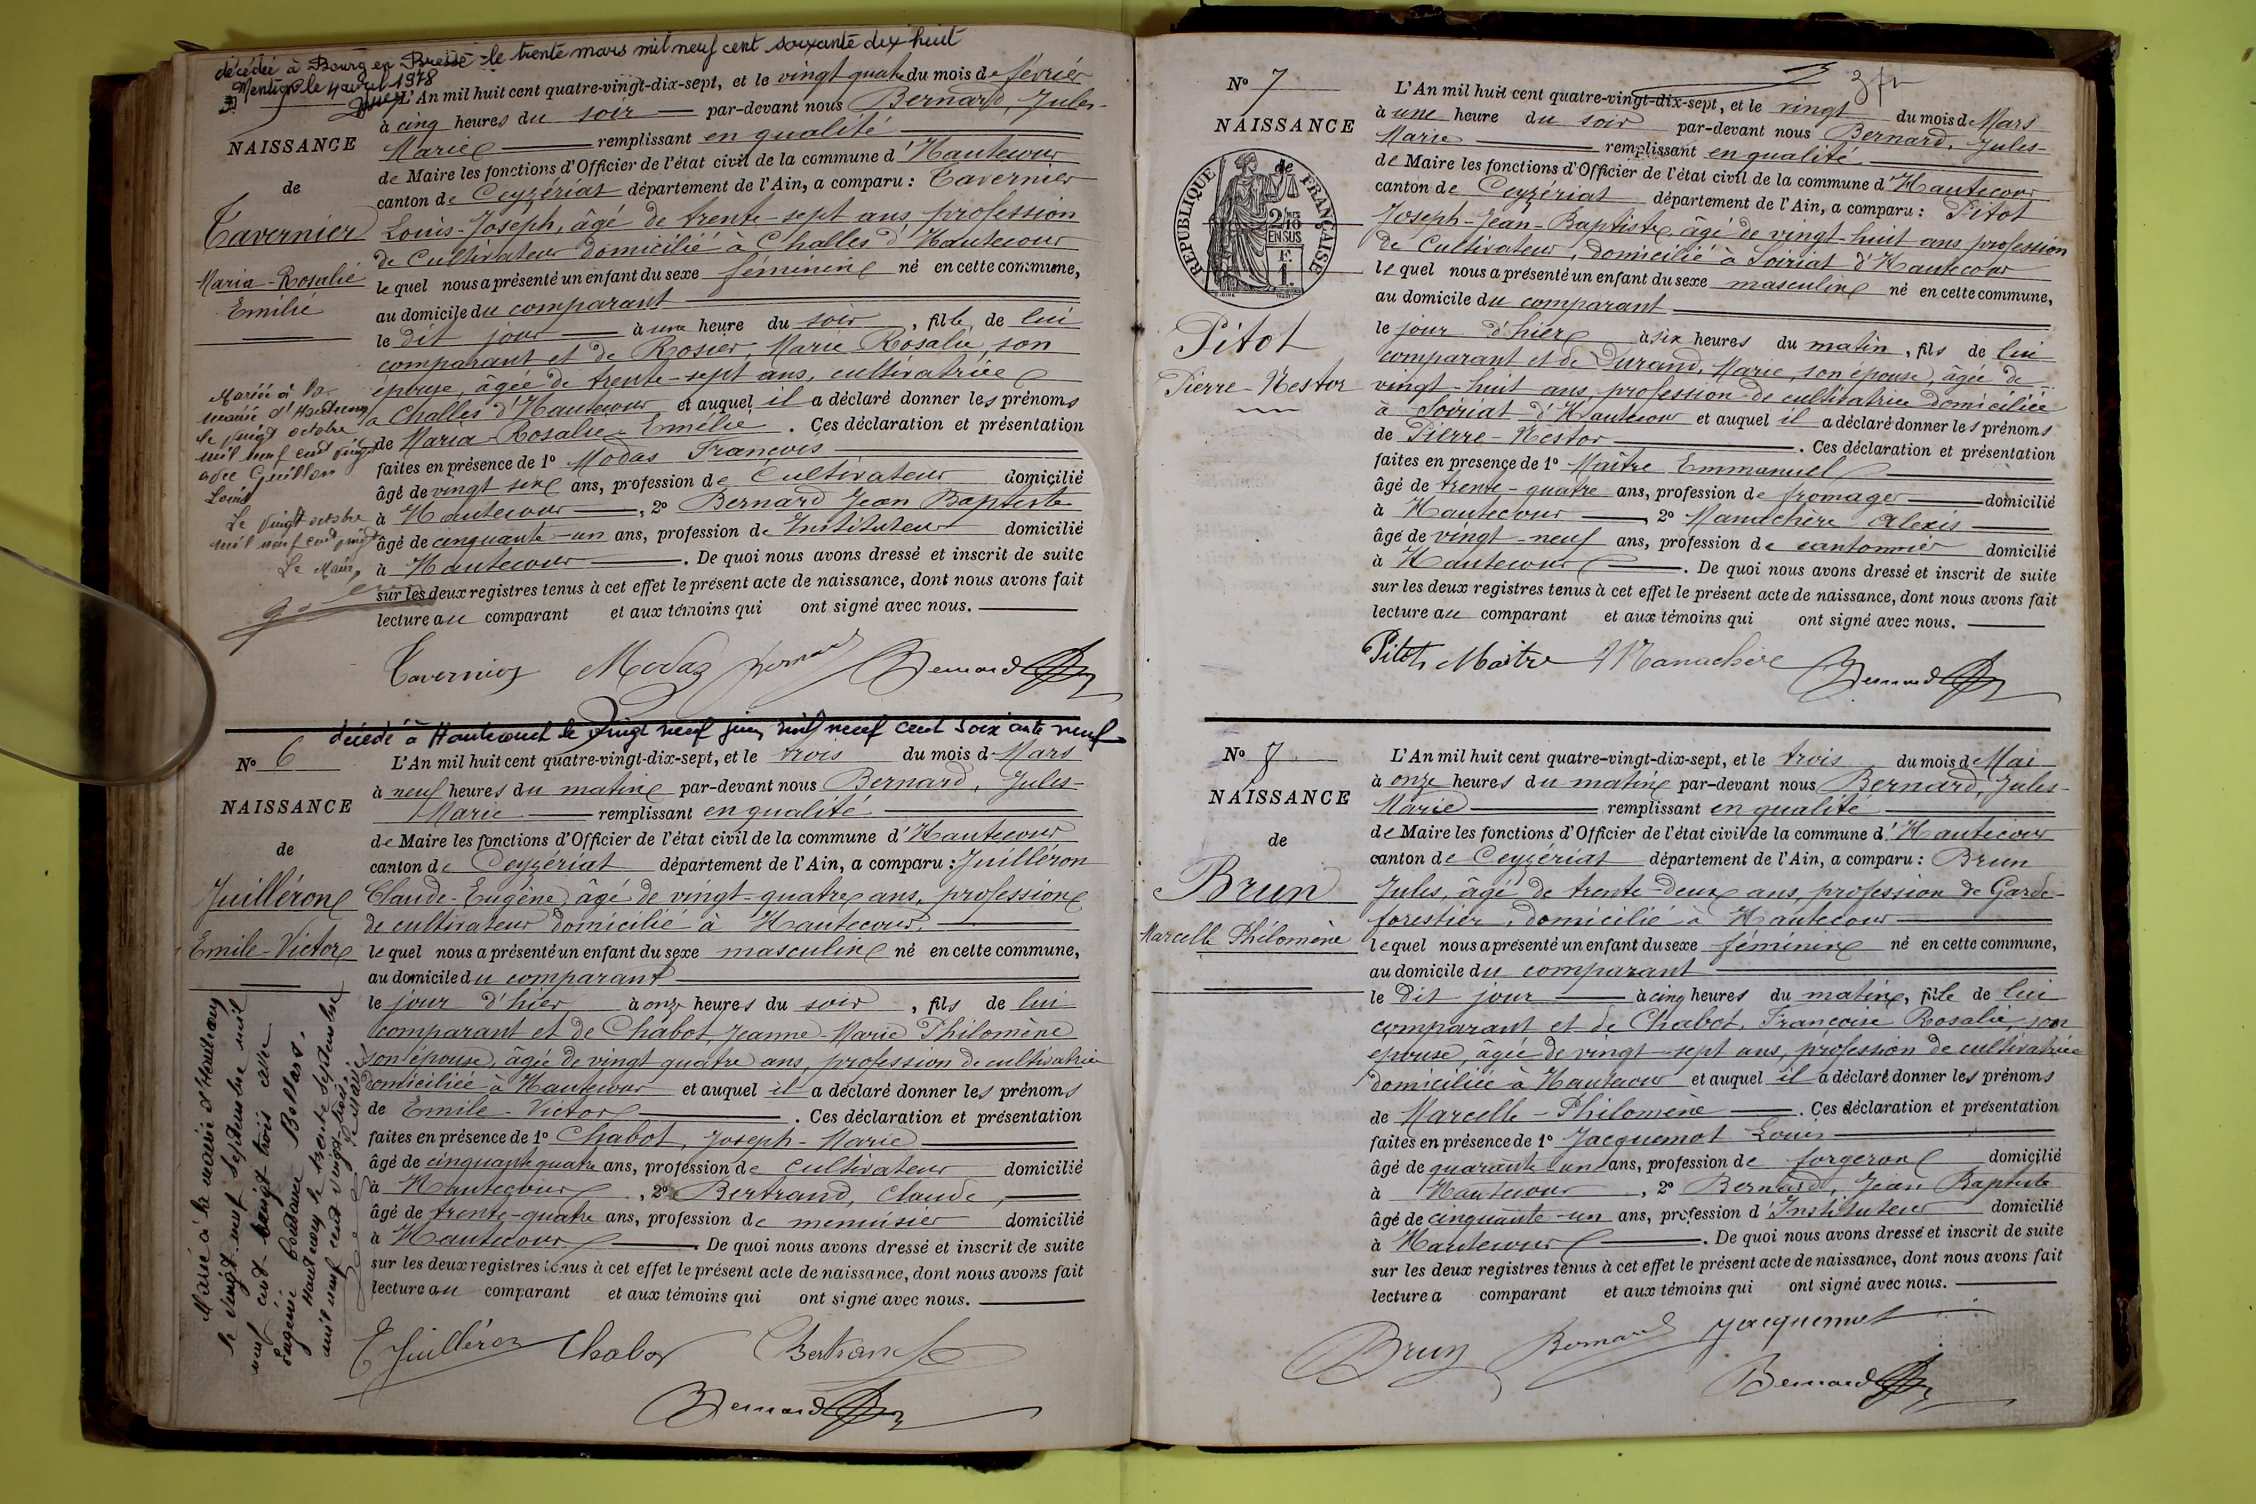 décédée à Bourg en Bresse le trente mars mil neuf cent soixante dix huit
Mention le 4 avril 1978
NAISSANCE
de
Tavernier
Maria-Rosalie
Emilie
Mariée à la
mairie d'Hautecour
le vingt octobre
mil neuf cent vingt
avec Guillon
Louis
Le vingt octobre
mil neuf cent vingt
Le Maire,
L'An mil huit cent quatre-vingt-dix-sept, et le vingt quatre du mois de février
à cinq heures du soir par-devant nous Bernard, Jules-
Marie remplissant en qualité
de Maire les fonctions d'Officier de l'état civil de la commune d'Hautecour
canton de Ceyzériat département de l'Ain, a comparu : Tavernier
Louis-Joseph, âgé de trente-sept ans profession
de Cultivateur domicilié à Challes d'Hautecour
lequel nous a présenté un enfant du sexe féminin né en cette commune,
au domicile du comparant
le dit jour à une heure du soir, fille de lui
comparant et de Rosier, Marie Rosalie, son
épouse, âgée de trente-sept ans, cultivatrice
à Challes d'Hautecour et auquel il a déclaré donner les prénoms
de Maria-Rosalie-Emélie. Ces déclaration et présentation
faites en présence de 1º Modas Francois
âgé de vingt six ans, profession de Cultivateur domicilié
à Hautecour, 2º Bernard Jean Baptiste
âgé de cinquante-un ans, profession de Instituteur domicilié
à Hautecour. De quoi nous avons dressé et inscrit de suite
sur les deux registres tenus à cet effet le présent acte de naissance, dont nous avons fait
lecture au comparant et aux témoins qui ont signé avec nous.
Tavernier Modas Bernard Bernard
décédé à Hautecourt le vingt neuf juin mil neuf cent soixante neuf
Nº 6
NAISSANCE
de
Juilléron
Emile-Victor
Marié à la mairie d'Hautecour
le vingt neuf septembre mil
neuf cent vingt trois avec
Eugénie Constance Bollas.
Hautecour le trente septembre
mil neuf cent vingt trois
Le Maire
L'An mil huit cent quatre-vingt-dix-sept, et le trois du mois d Mars
à neuf heures du matin par-devant nous Bernard, Jules-
Marie remplissant en qualité
de Maire les fonctions d'Officier de l'état civil de la commune d'Hautecour
canton de Ceyzériat département de l'Ain, a comparu : Juilléron
Claude-Eugène, âgé de vingt-quatre ans, profession
de cultivateur domicilié à Hautecour.
lequel nous a présenté un enfant du sexe masculin né en cette commune,
au domicile du comparant
le jour d'hier à onze heures du soir, fils de lui
comparant et de Chabot, Jeanne-Marie Philomène
son épouse, âgée de vingt quatre ans, profession de cultivatrice
domiciliée à Hautecour et auquel il a déclaré donner les prénoms
de Emile-Victor. Ces déclaration et présentation
faites en présence de 1º Chabot, Joseph-Marie
âgé de cinquante quatre ans, profession de cultivateur domicilié
à Hautecour, 2º Bertrand, Claude,
âgé de trente-quatre ans, profession de menuisier domicilié
à Hautecour. De quoi nous avons dressé et inscrit de suite
sur les deux registres tenus à cet effet le présent acte de naissance, dont nous avons fait
lecture au comparant et aux témoins qui ont signé avec nous.
Juilléron Chabot Bertrand
Bernard
3 fr
Nº 7
NAISSANCE
de
RÉPUBLIQUE FRANÇAISE
2/10 EN SUS
F. 1.
Pitot
Pierre-Nestor
L'An mil huit cent quatre-vingt-dix-sept, et le vingt du mois de Mars
à une heure du soir par-devant nous Bernard, Jules-
Marie remplissant en qualité
de Maire les fonctions d'Officier de l'état civil de la commune d'Hautecour
canton de Ceyzériat département de l'Ain, a comparu : Pitot
Joseph-Jean-Baptiste âgé de vingt-huit ans profession
de Cultivateur, domicilié à Soiriat d'Hautecour
lequel nous a présenté un enfant du sexe masculin né en cette commune,
au domicile du comparant
le jour d'hier à six heures du matin, fils de lui
comparant et de Durand, Marie, son épouse, âgée de
vingt-huit ans profession de cultivatrice domiciliée
à Soiriat d'Hautecour et auquel il a déclaré donner les prénoms
de Pierre-Nestor. Ces déclaration et présentation
faites en présence de 1º Maitre Emmanuel
âgé de trente-quatre ans, profession de fromager domicilié
à Hautecour, 2º Manachère Alexis
âgé de vingt-neuf ans, profession de cantonnier domicilié
à Hautecour. De quoi nous avons dressé et inscrit de suite
sur les deux registres tenus à cet effet le présent acte de naissance, dont nous avons fait
lecture au comparant et aux témoins qui ont signé avec nous.
Pitot Maitre Manachère Bernard
Nº 8
NAISSANCE
de
Brun
Marcelle Philomène
L'An mil huit cent quatre-vingt-dix-sept, et le trois du mois de Mai
à onze heures du matin par-devant nous Bernard, Jules-
Marie remplissant en qualité
de Maire les fonctions d'Officier de l'état civil de la commune d'Hautecour
canton de Ceyzériat département de l'Ain, a comparu : Brun
Jules, âgé de trente-deux ans, profession de Garde-
forestier, domicilié à Hautecour
lequel nous a présenté un enfant du sexe féminin né en cette commune,
au domicile du comparant
le dit jour à cinq heures du matin, fille de lui
comparant et de Chabot, Françoise Rosalie, son
épouse, âgée de vingt-sept ans, profession de cultivatrice
domiciliée à Hautecour et auquel il a déclaré donner les prénoms
de Marcelle-Philomène. Ces déclaration et présentation
faites en présence de 1º Jacquemot Louis
âgé de quarante un ans, profession de forgeron domicilié
à Hautecour, 2º Bernard, Jean Baptiste
âgé de cinquante-un ans, profession d'Instituteur domicilié
à Hautecour. De quoi nous avons dressé et inscrit de suite
sur les deux registres tenus à cet effet le présent acte de naissance, dont nous avons fait
lecture a comparant et aux témoins qui ont signé avec nous.
Brun Bernard Jacquemot
Bernard